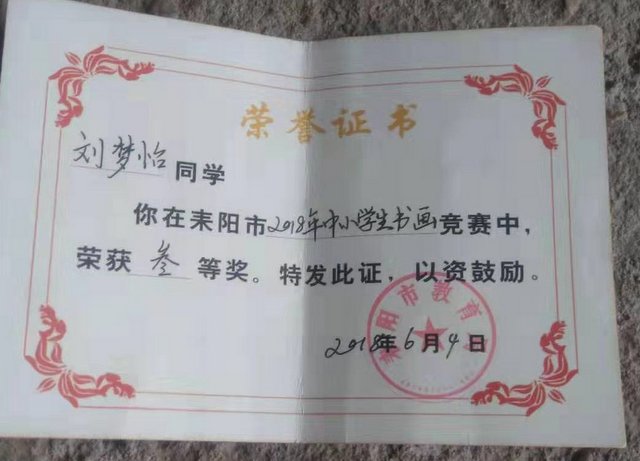 荣誉证书
刘梦怡同学
你在耒阳市2018年中小学生书画竞赛中，
荣获叁等奖。特发此证，以资鼓励。
耒阳市教育
2018年6月4日